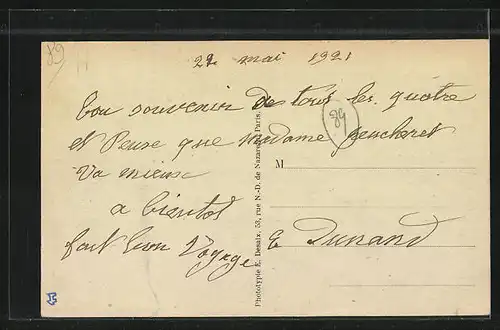 89
22 mai 1921
bon souvenir de tous les quatre
89
et Pense que madame
M
Va mieux
a bientot
fait bon Voyage E Dunand
Phototypie E. Desaix, 53, rue N.-D. de Nazareth, Paris.